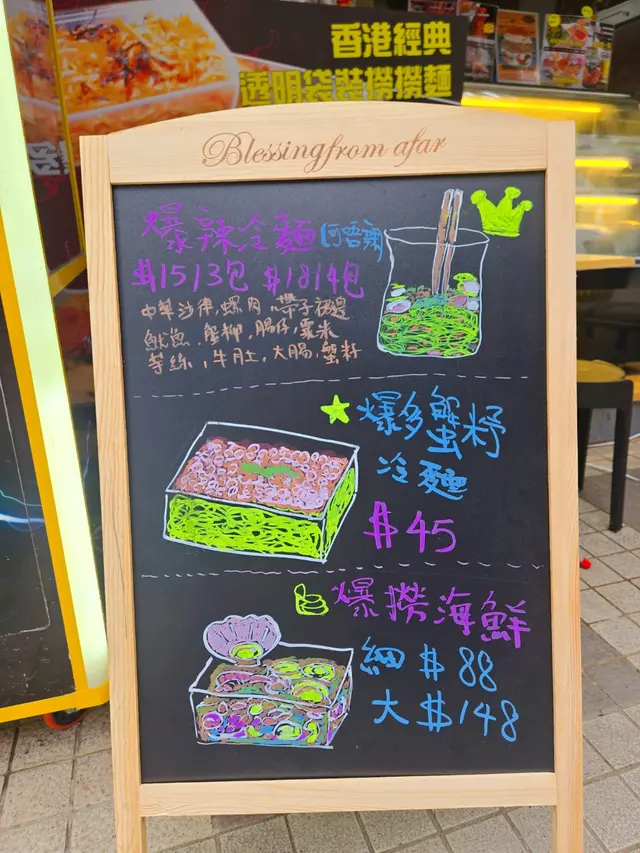 香港經典
透明袋裝撈撈麵
Blessing from afar
爆辣冷麵
$15/3包 $18/4包
中華沙律,螺肉,帶子裙邊
魷魚,蟹柳,腸仔,粟米
芽絲,牛肚,大腸,蟹籽
爆多蟹籽
冷麵
$45
爆撈海鮮
細 $88
大 $148